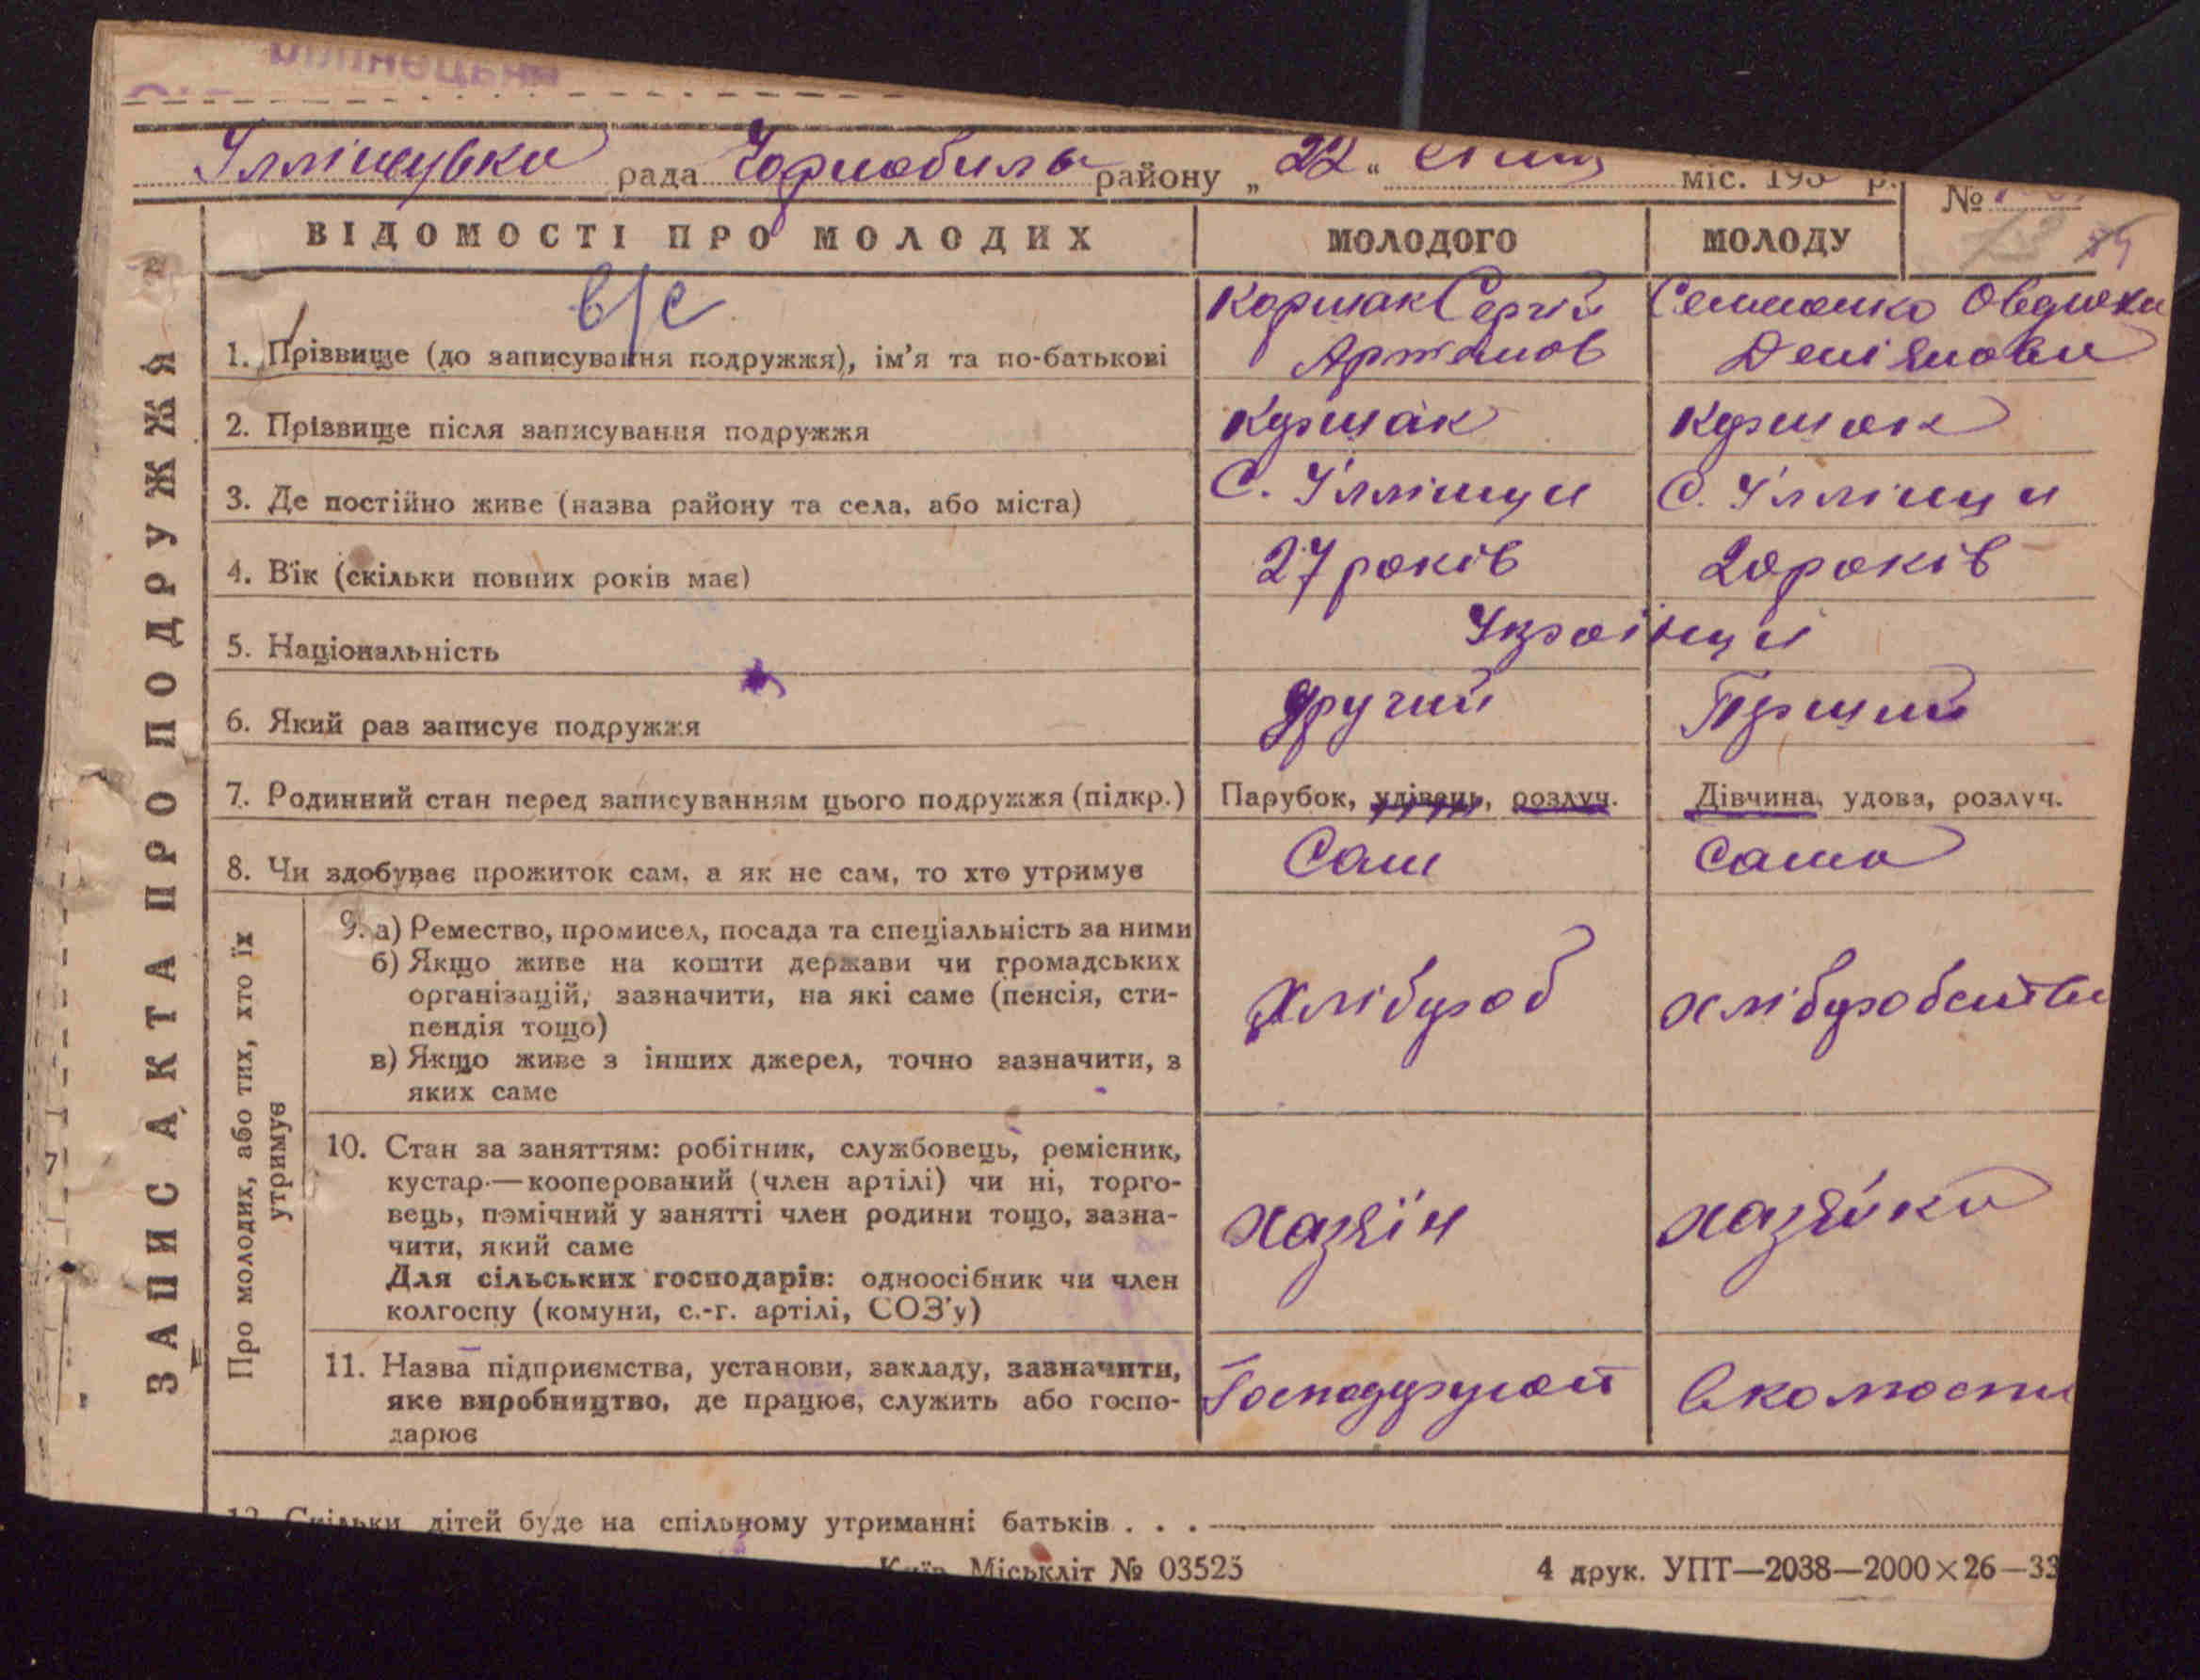 Іллінецька
Іллінцівка рада Чорнобиль району „ 22 “ січня міс. 193 р.
№
ВІДОМОСТІ ПРО МОЛОДИХ МОЛОДОГО МОЛОДУ
73
в/с
1. Прізвище (до записування подружжя), ім'я та по-батькові Коршак Сергій Артемов Семиенко Овдюха Демьянова
2. Прізвище після записування подружжя Коршак Коршак
3. Де постійно живе (назва району та села, або міста) С. Іллінци С. Іллінци
4. Вік (скільки повних років має) 27 років 20 років
5. Національність Українці
6. Який раз записує подружжя другий Перший
7. Родинний стан перед записуванням цього подружжя (підкр.) Парубок, удівець, розлуч. Дівчина, удова, розлуч.
8. Чи здобуває прожиток сам, а як не сам, то хто утримує Сам Сама
9. а) Ремество, промисел, посада та спеціальність за ними
б) Якщо живе на кошти держави чи громадських
організацій, зазначити, на які саме (пенсія, сти-
пендія тощо)
в) Якщо живе з інших джерел, точно зазначити, з
яких саме
Хлібороб хлібороб
10. Стан за заняттям: робітник, службовець, ремісник,
кустар—кооперований (член артілі) чи ні, торго-
вець, помічний у занятті член родини тощо, зазна-
чити, який саме
Для сільських господарів: одноосібник чи член
колгоспу (комуни, с.-г. артілі, СОЗ'у)
хазяїн хазяйка
11. Назва підприємства, установи, закладу, зазначити,
яке виробництво, де працює, служить або госпо-
дарює
Господарюют в колгоспи
12. Скільки дітей буде на спільному утриманні батьків . . .
Київ. Міськліт № 03525 4 друк. УПТ—2038—2000×26—33
ЗАПИС АКТА ПРО ПОДРУЖЖЯ
Про молодих, або тих, хто їх
утримує